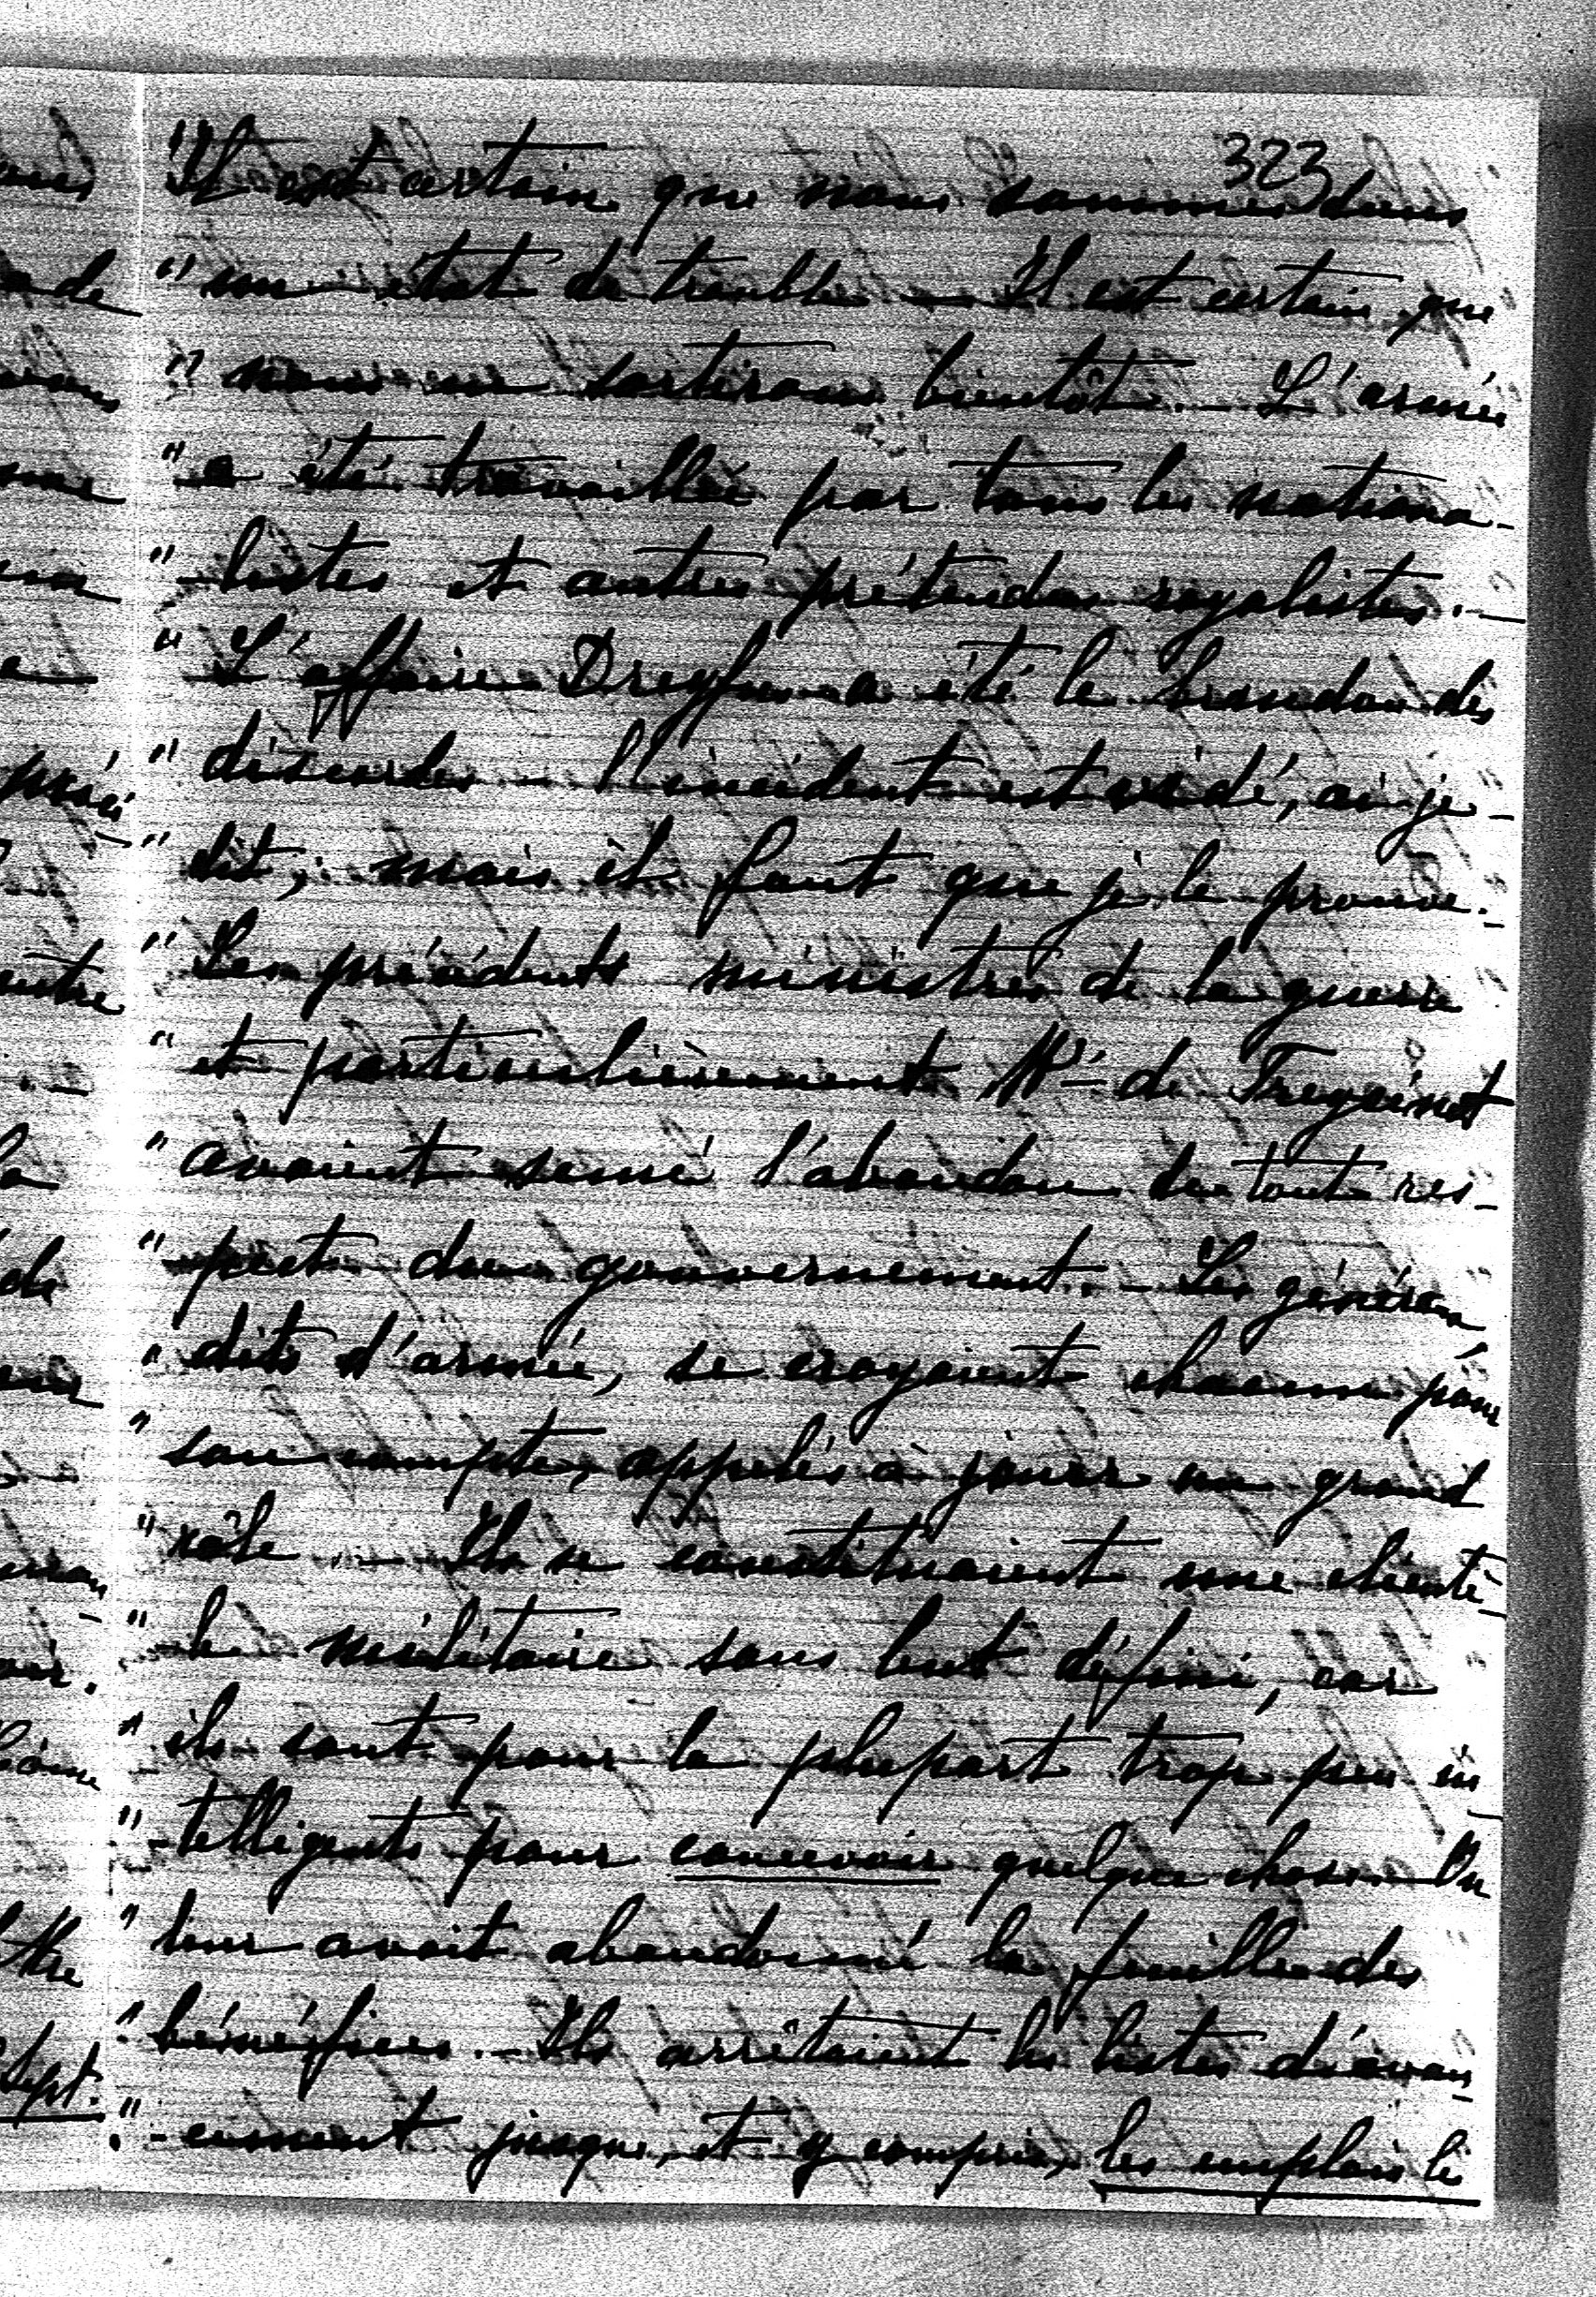 323
"Il est certain que nous sommes dans
" un état de trouble — Il est certain que
" nous en sortirons bientôt. — L'armée
" a été travaillée par tous les nationa-
"-listes et autres prétendus royalistes. —
" L'affaire Dreyfus a été le brandon des
" discordes — l'incident est vidé, ai-je-
" dit; mais il faut que je le prouve. -
" Les précédents ministres de la guerre
" et particulièrement Mr de Freycinet
" avaient semé l'abandon de tout res-
"-pect du gouvernement. — Les généraux
" dits d'armée, se croyaient chacun pour
" son compte, appelés à jouer un grand
" rôle. — Ils se constituaient une clientè-
"-le militaire sans but défini, car
" ils sont pour la plupart trop peu in-
"-telligents pour concevoir quelque chose. On
" leur avait abandonné la feuille des
" bénéfices. — Ils arrêtaient les listes d'avan-
"-cement jusque, et y compris, les emplois les